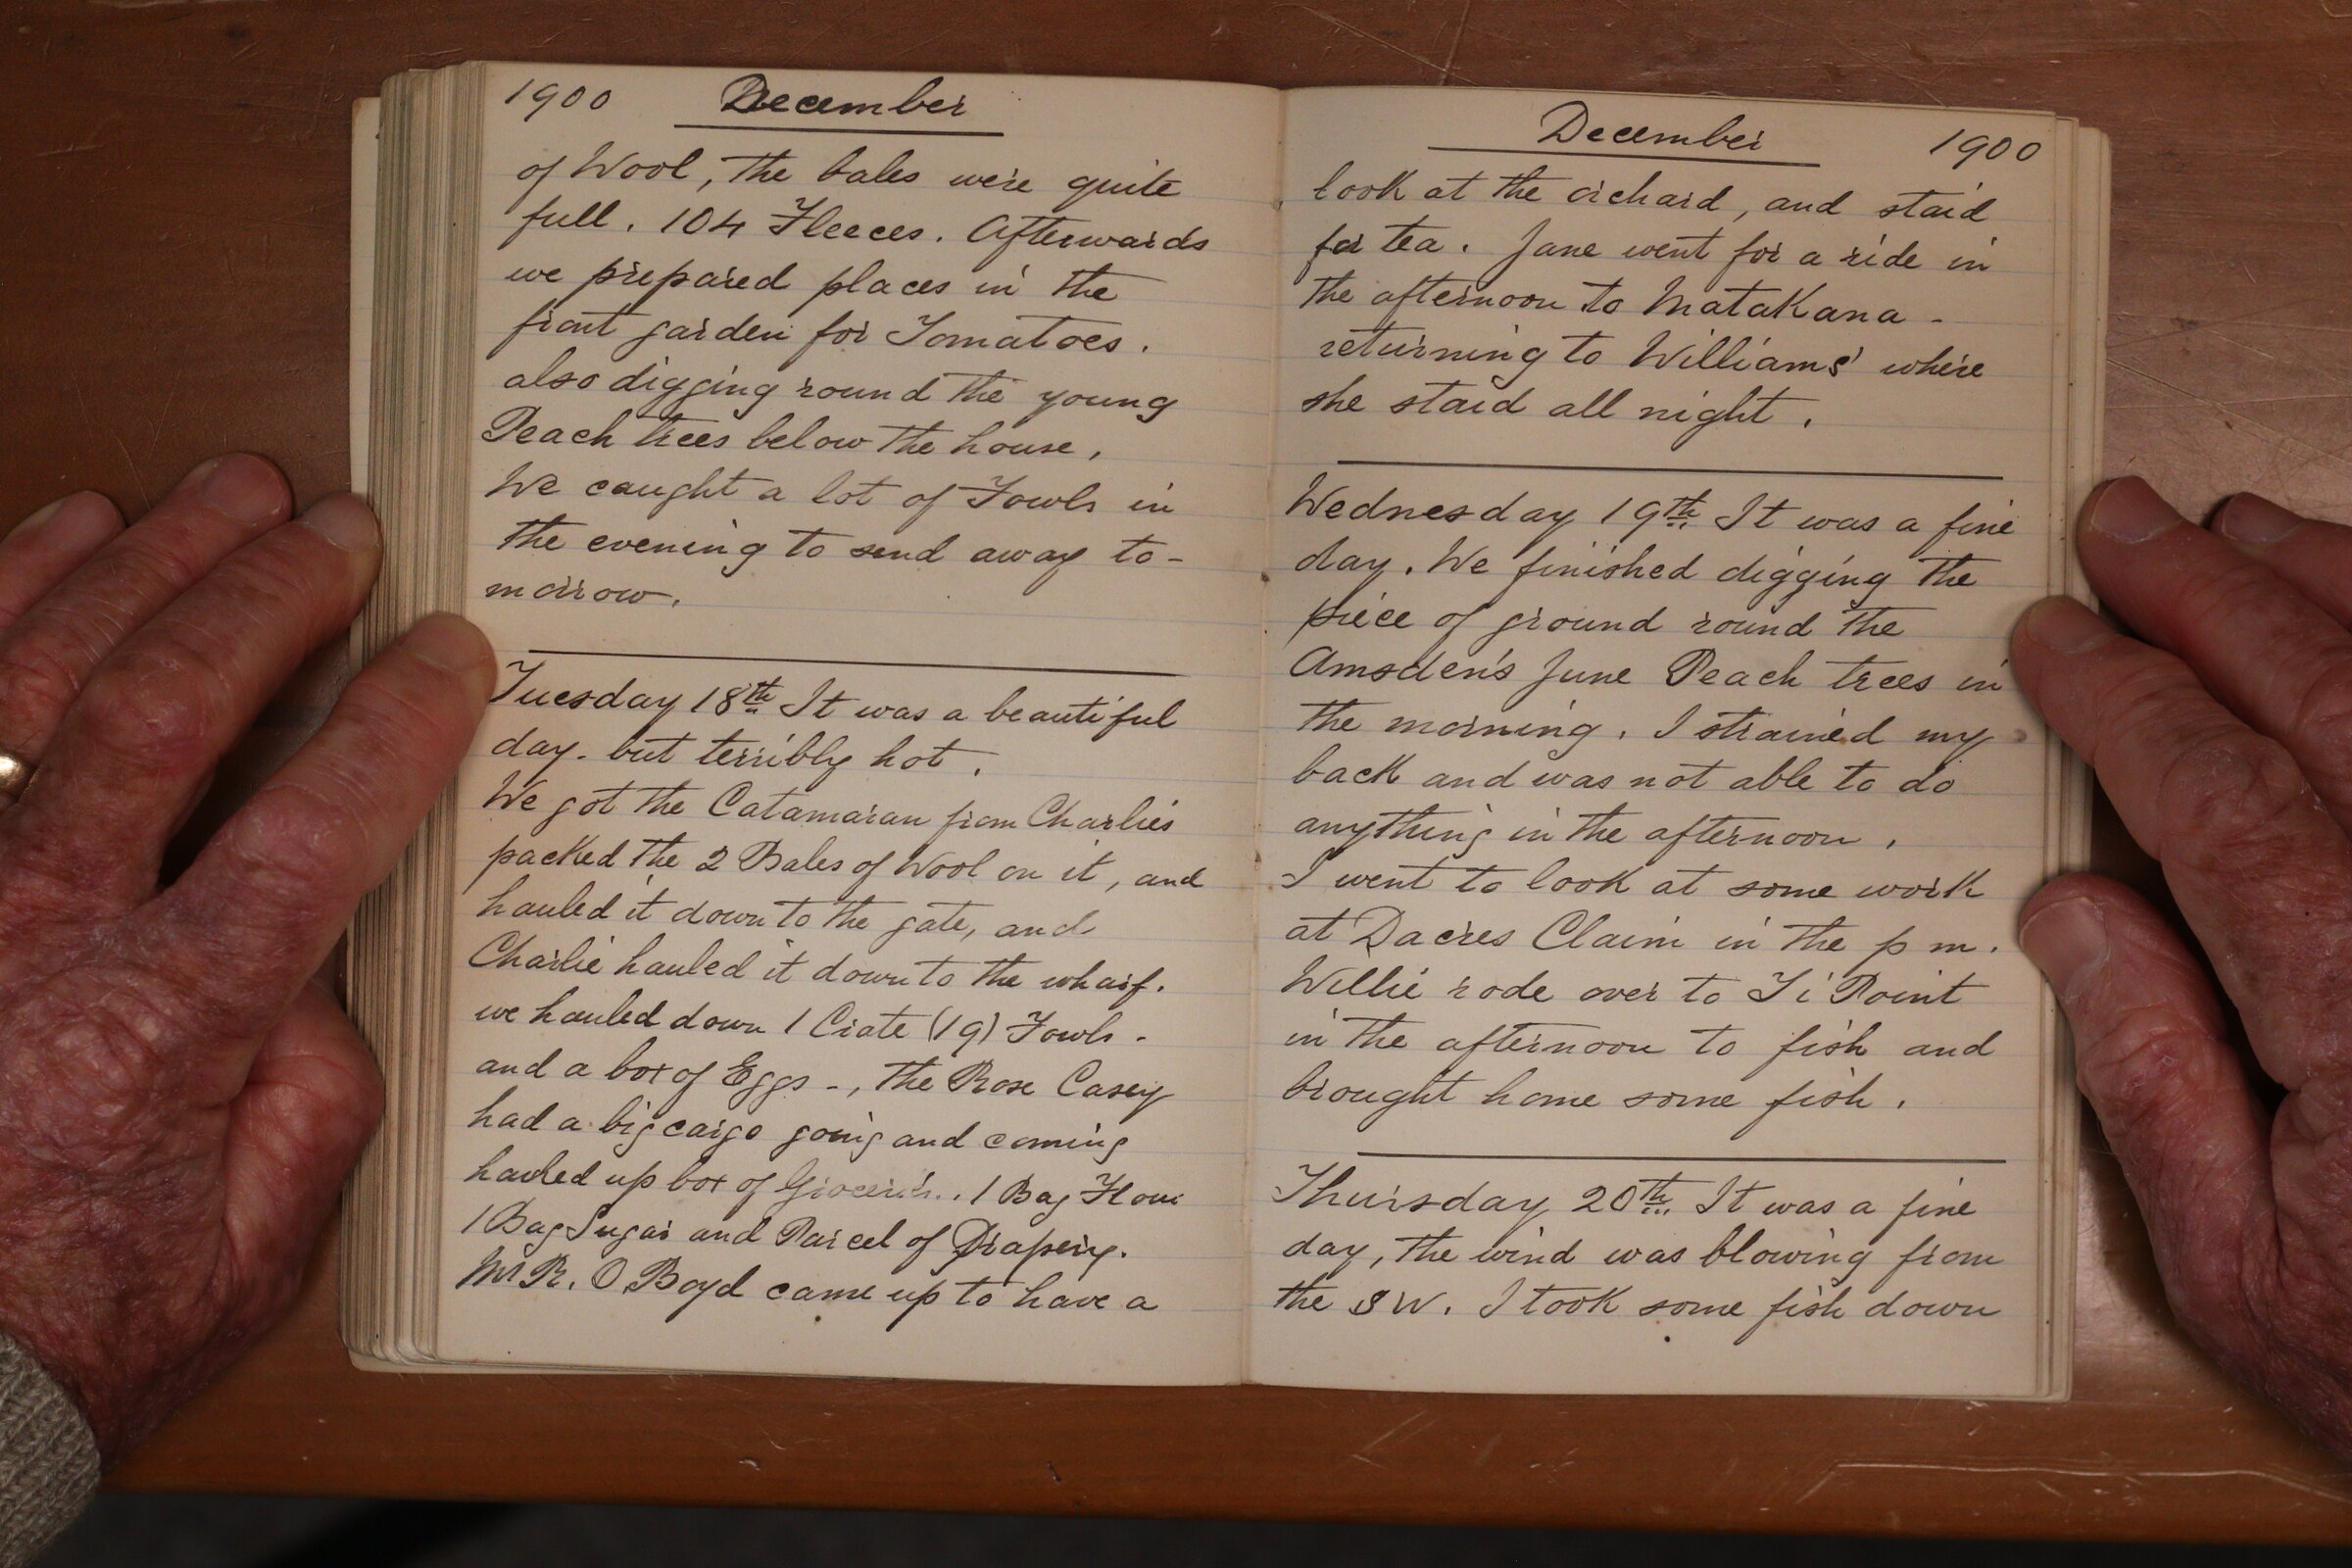 1900 December
of Wool, the bales were quite
full. 104 Fleeces. Afterwards
we prepared places in the
front garden for Tomatoes.
also digging round the young
Peach trees below the house.
We caught a lot of Fowls in
the evening to send away to-
morrow.
Tuesday 18th It was a beautiful
day. but terribly hot.
We got the Catamaran from Charlies
packed the 2 Bales of Wool on it, and
hauled it down to the gate, and
Charlie hauled it down to the wharf.
we hauled down 1 Crate (19) Fowls -
and a box of Eggs -, the Rose Casey
had a big cargo going and coming
hauled up box of Groceries.. 1 Bag Flour
1 Bag Sugar and Parcel of Drapery.
Mr R. O Boyd came up to have a
December 1900
look at the orchard, and staid
for tea. Jane went for a ride in
the afternoon to Matakana -
returning to Williams' where
she staid all night.
Wednesday 19th It was a fine
day. We finished digging the
piece of ground round the
Amsden's June Peach trees in
the morning. I strained my
back and was not able to do
anything in the afternoon.
I went to look at some work
at Dacres Claim in the p m.
Willie rode over to Ti Point
in the afternoon to fish and
brought home some fish.
Thursday 20th It was a fine
day, the wind was blowing from
the S W. I took some fish down